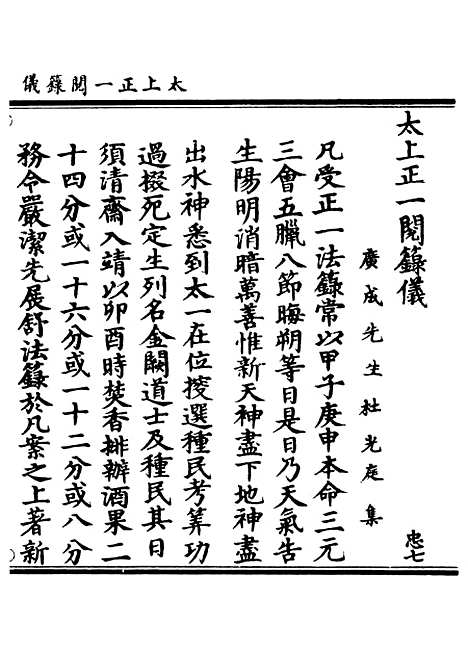 太上正一閱籙儀
太上正一閱籙儀
忠七
廣成先生杜光庭集
凡受正一法籙常以甲子庚申本命三元
三會五臘八節晦朔等日是日乃天氣告
生陽明消暗萬善惟新天神盡下地神盡
出水神悉到太一在位㨮選種民考筭功
過掇死定生列名金闕道士及種民其日
須清齋入靖以卯酉時焚香排辦酒果二
十四分或一十六分或一十二分或八分
務令嚴潔先展舒法籙於凡案之上著新